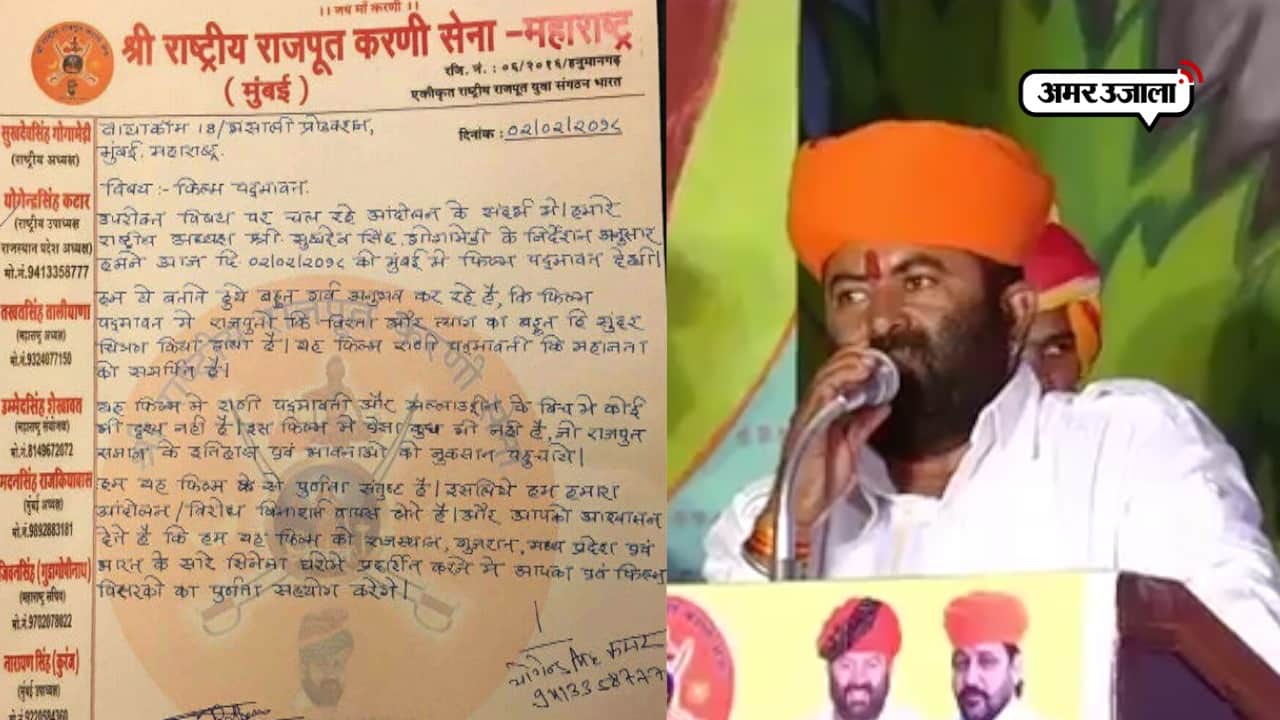 ।। जय माँ करणी ।।
श्री राष्ट्रीय राजपूत करणी सेना -महाराष्ट्र
( मुंबई )
रजि. नं. : ०६/२०१६/हनुमानगढ़
एकीकृत राष्ट्रीय राजपूत युवा संगठन भारत
दिनांक : ०२/०२/२०१८
सुखदेवसिंह गोगामेड़ी
(राष्ट्रीय अध्यक्ष)
योगेन्द्रसिंह कटार
(राष्ट्रीय उपाध्यक्ष
राजस्थान प्रदेश अध्यक्ष)
मो.नं.9413358777
तखतसिंह तालीयाणा
(महाराष्ट्र अध्यक्ष)
मो.नं.9324077150
उम्मेदसिंह शेखावत
(महाराष्ट्र संयोजक)
मो.नं.8149672072
मदनसिंह राजकियाबास
(मुंबई अध्यक्ष)
मो.नं.9892883181
जिवनसिंह (गुडागोपीनाथ)
(महाराष्ट्र सचिव)
मो.नं.9702078022
नारायण सिंह (कुरंज)
(मुंबई उपाध्यक्ष)
मो.नं.9220584360
वायाकॉम 18/भंसाली प्रोडक्शन,
मुंबई, महाराष्ट्र.
विषय :- फिल्म पद्मावत.
उपरोक्त विषय पर चल रहे आंदोलन के संदर्भ मे। हमारे
राष्ट्रीय अध्यक्ष श्री सुखदेव सिंह गोगामेडी के निर्देशन अनुसार
हमने आज दि ०२/०२/२०१८ को मुंबई मे फिल्म पद्मावत देखी।
हम ये बताते हुये बहुत गर्व अनुभव कर रहे है, कि फिल्म
पद्मावत मे राजपूतो कि विरता और त्याग का बहूत हि सुंदर
चित्रण किया गया है। यह फिल्म राणी पद्मावती कि महानता
को समर्पित है।
यह फिल्म मे राणी पद्मावती और अल्लाउद्दीन के बिच मे कोई
भी दृश्य नही है। इस फिल्म मे ऐसा कुछ भी नही है, जो राजपुत
समाज के इतिहास एवं भावनाओ को नुकसान पहुचाये।
हम यह फिल्म के से पुर्णता संतुष्ट है। इसलिये हम हमारा
आंदोलन/विरोध बिनाशर्त वापस लेते है। और आपको आश्वासन
देते है कि हम यह फिल्म को राजस्थान, गुजरात, मध्य प्रदेश एवं
भारत के सारे सिनेमा घरोमे प्रदर्शित करने मे आपका एवं फिल्म
वितरको का पुर्णता सहयोग करेंगे।
योगेन्द्र सिंह कटार
9413358777
अमर उजाला